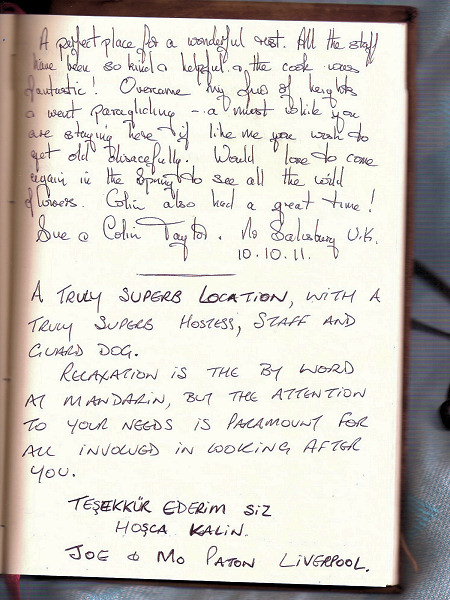 A perfect place for a wonderful rest. All the staff
have been so kind & helpful & the cook was
fantastic! Overcame my fear of heights
& went paragliding - a must while you
are staying here if like me you wish to
get old disgracefully. Would love to come
again in the Spring to see all the wild
flowers. Colin also had a great time!
Sue & Colin Taylor. Nr Salisbury U.K.
10.10.11.
A TRULY SUPERB LOCATION, WITH A
TRULY SUPERB HOSTESS, STAFF AND
GUARD DOG.
RELAXATION IS THE BY WORD
AT MANDARIN, BUT THE ATTENTION
TO YOUR NEEDS IS PARAMOUNT FOR
ALL INVOLVED IN LOOKING AFTER
YOU.
TEŞEKKÜR EDERIM SIZ
HOŞCA KALIN.
JOE & MO PATON LIVERPOOL.